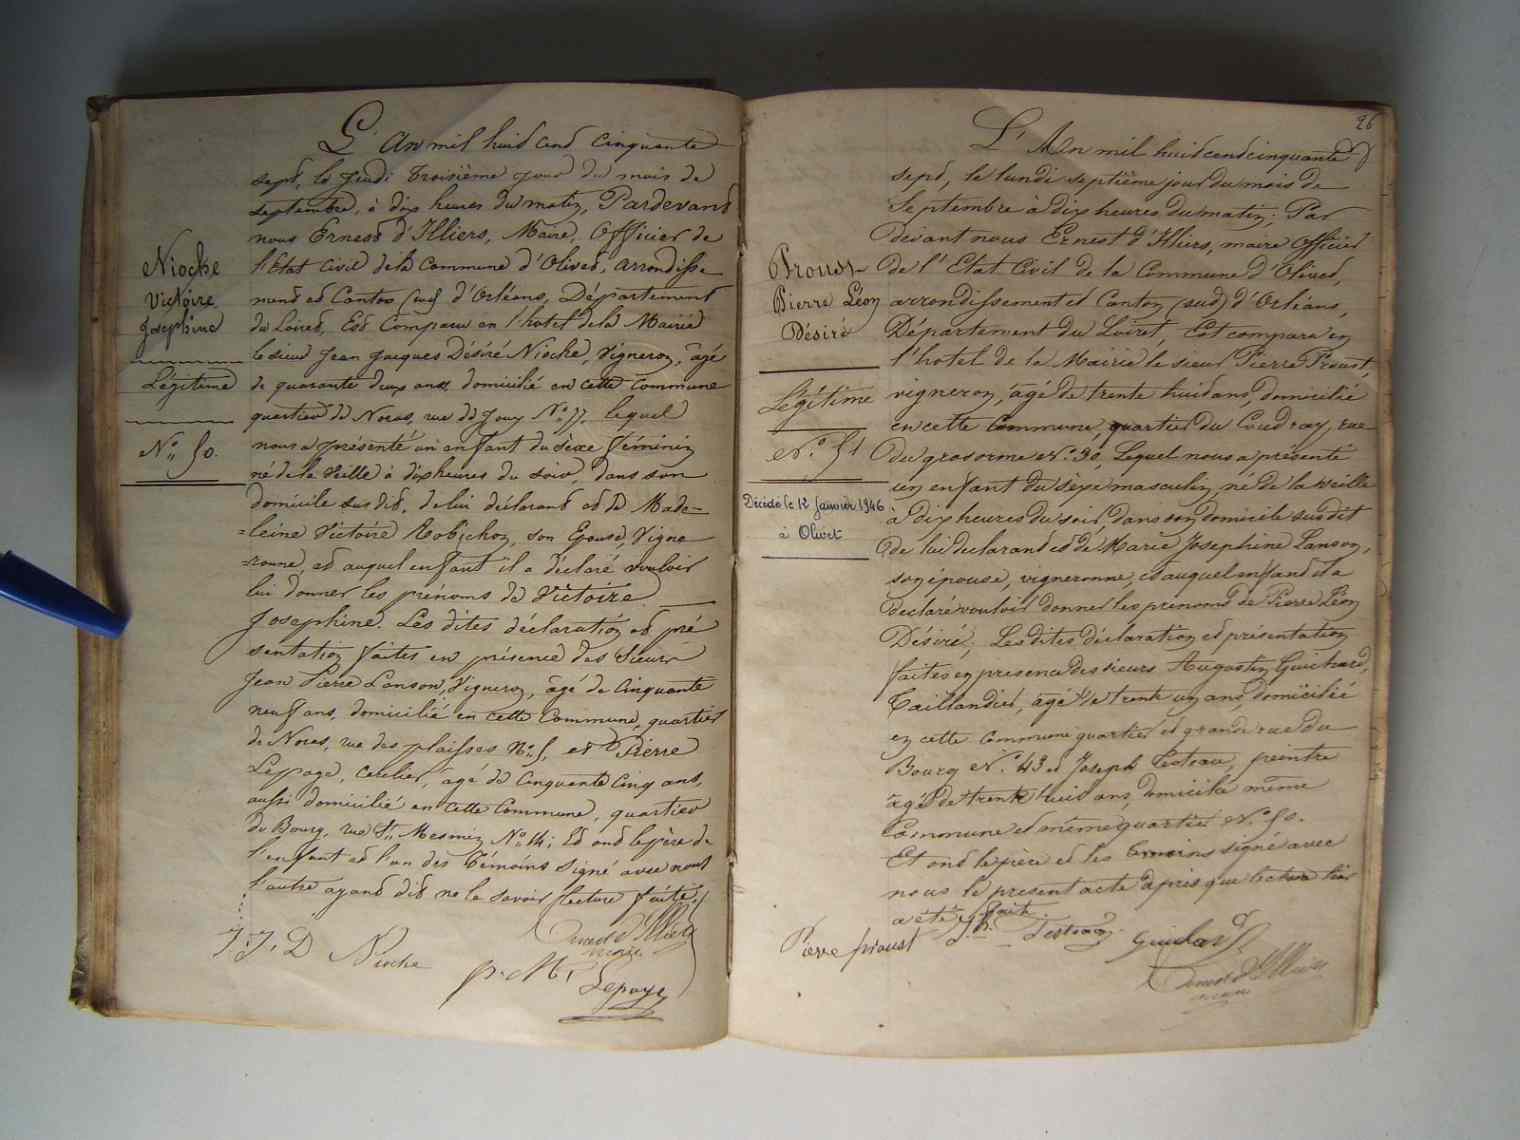 L'An mil huit cent Cinquante
sept, le Jeudi Troisième jour du mois de
septembre, à dix heures du matin, Pardevant
nous Ernest d'Illiers, Maire, Officier de
l'Etat Civil de la Commune d'Olivet, arrondisse
ment et Canton (sud) d'Orléans, Département
du Loiret, Est Comparu en l'hotel de la Mairie
le sieur Jean Jacques Désiré Nioche, Vigneron, âgé
de quarante deux ans domicilié en cette Commune
quartier de Noras, rue de Jouy No lequel
nous a présenté un enfant du sèxe féminin
né de la Veille à dix heures du soir, dans son
domicile sus dit, de lui déclarant et de Made-
=leine Victoire Robichon, son Epouse, Vigne
=ronne, et auquel enfant il a déclaré vouloir
lui donner les prénoms de Victoire
Josephine. Les dites déclaration et pré
sentation faites en présence des Sieurs
Jean Pierre Lanson, Vigneron, âgé de Cinquante
neuf ans, domicilié en cette Commune, quartier
de Noras, rue des plaisses No 5, et Pierre
Lepage, Cerclier, âgé de Cinquante Cinq ans,
aussi domicilié en Cette Commune, quartier
du Bourg, rue St Mesmin No 14; Et ont le père de
l'enfant et l'un des Témoins signé avec nous
l'autre ayant dit ne le savoir lecture faite.
Nioche
Victoire
Josephine
Légitime
No 50.
J. J. D Nioche
Ernest d'Illiers
maire
Lepage
26
L'An mil huit cent cinquante
sept, le lundi septième jour du mois de
Septembre à dix heures du matin; Par
devant nous Ernest d'Illiers, maire Officier
de l'Etat Civil de la Commune d'Olivet,
arrondissement et Canton (sud) d'Orléans,
Département du Loiret, Est comparu en
l'hotel de la Mairie le sieur Pierre Proust,
vigneron, âgé de trente huit ans, domicilié
en cette Commune, quartier du Coudray, rue
du gros orme No. 30, Lequel nous a présenté
un enfant du sèxe masculin, né de la veille
à dix heures du soir, dans son domicile sus dit
de lui declarant et de Marie Josephine Lanson,
son épouse, vigneronne, et auquel enfant il a
declaré vouloir donner les prénoms de Pierre Léon
Désiré. Les dites déclaration et présentation
faites en presence des sieurs Augustin Guichard,
Taillandier, âgé de trente un ans, domicilié
en cette Commune quartier et grande rue du
Bourg No. 43 et Joseph Testeau, peintre
âgé de trente huit ans, domicilié même
Commune et même quartier No. 50.
Et ont le père et les temoins signé avec
nous le present acte après que lecture lui
a été faite.
Proust
Pierre Léon
Désiré
Légitime
No. 51
Décédé le 12 Janvier 1946
à Olivet
Pierre proust
Jh. Testeau
Guichard
Ernest d'Illiers
maire